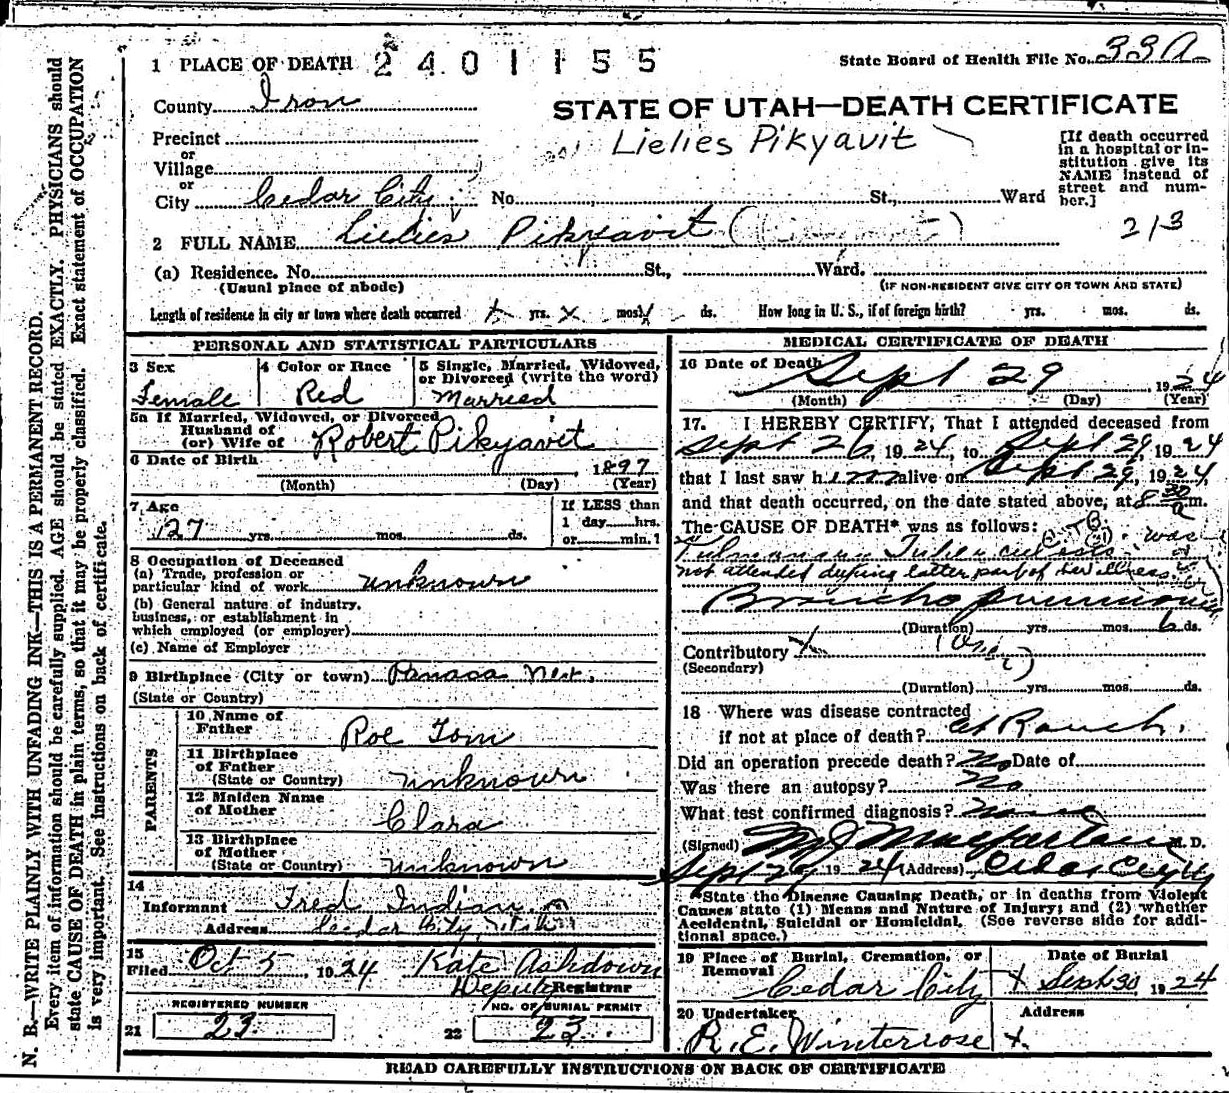 1 PLACE OF DEATH 2401155
State Board of Health File No. 33A
County Iron
STATE OF UTAH—DEATH CERTIFICATE
Precinct
Lielies Pikyavit
[If death occurred
in a hospital or in-
stitution give its
NAME instead of
street and num-
ber.]
or
Village
or
City Cedar City No. St., Ward
213
2 FULL NAME Lielies Pikyavit
(a) Residence. No. St., Ward.
(Usual place of abode)
(IF NON-RESIDENT GIVE CITY OR TOWN AND STATE)
Length of residence in city or town where death occurred x yrs. x mos. ds. How long in U. S., if of foreign birth? yrs. mos. ds.
PERSONAL AND STATISTICAL PARTICULARS
3 Sex
Female
4 Color or Race
Red
5 Single, Married, Widowed,
or Divorced (write the word)
Married
5a If Married, Widowed, or Divorced
Husband of
(or) Wife of Robert Pikyavit
6 Date of Birth 1897
(Month) (Day) (Year)
7 Age
27 yrs. mos. ds.
If LESS than
1 day hrs.
or min.?
8 Occupation of Deceased
(a) Trade, profession or
particular kind of work unknown
(b) General nature of industry,
business, or establishment in
which employed (or employer)
(c) Name of Employer
9 Birthplace (City or town) Panaca Nev.
(State or Country)
PARENTS
10 Name of
Father Roe Tom
11 Birthplace
of Father
(State or Country) unknown
12 Maiden Name
of Mother Clara
13 Birthplace
of Mother
(State or Country) unknown
14
Informant Fred Indian
Address Cedar City, Utah
15
Filed Oct 5 1924 Kate Ashdown
Deputy Registrar
REGISTERED NUMBER
21 23
NO. OF BURIAL PERMIT
22 23
MEDICAL CERTIFICATE OF DEATH
16 Date of Death Sept 29 1924
(Month) (Day) (Year)
17. I HEREBY CERTIFY, That I attended deceased from
Sept 26, 1924, to Sept 29, 1924
that I last saw him alive on Sept 29, 1924,
and that death occurred, on the date stated above, at 8 30 a m.
The CAUSE OF DEATH* was as follows:
was
Pulmonary Tuberculosis
not attended during latter part of her illness.
Broncho pneumonia
(Duration) yrs. mos. 6 ds.
Contributory x
(Secondary)
(Duration) yrs. mos. ds.
18 Where was disease contracted
if not at place of death? at Ranch.
Did an operation precede death? No Date of
Was there an autopsy? No
What test confirmed diagnosis? none
(Signed) M J Macfarlane M. D.
Sept 29 1924 (Address) Cedar City
*State the Disease Causing Death, or in deaths from Violent
Causes state (1) Means and Nature of Injury; and (2) whether
Accidental, Suicidal or Homicidal. (See reverse side for addi-
tional space.)
19 Place of Burial, Cremation, or
Removal
Cedar City
Date of Burial
Sept 30 1924
20 Undertaker
R. E. Winterrose
Address
x
READ CAREFULLY INSTRUCTIONS ON BACK OF CERTIFICATE
N. B.—WRITE PLAINLY WITH UNFADING INK—THIS IS A PERMANENT RECORD.
Every item of information should be carefully supplied. AGE should be stated EXACTLY. PHYSICIANS should
state CAUSE OF DEATH in plain terms, so that it may be properly classified. Exact statement of OCCUPATION
is very important. See instructions on back of certificate.